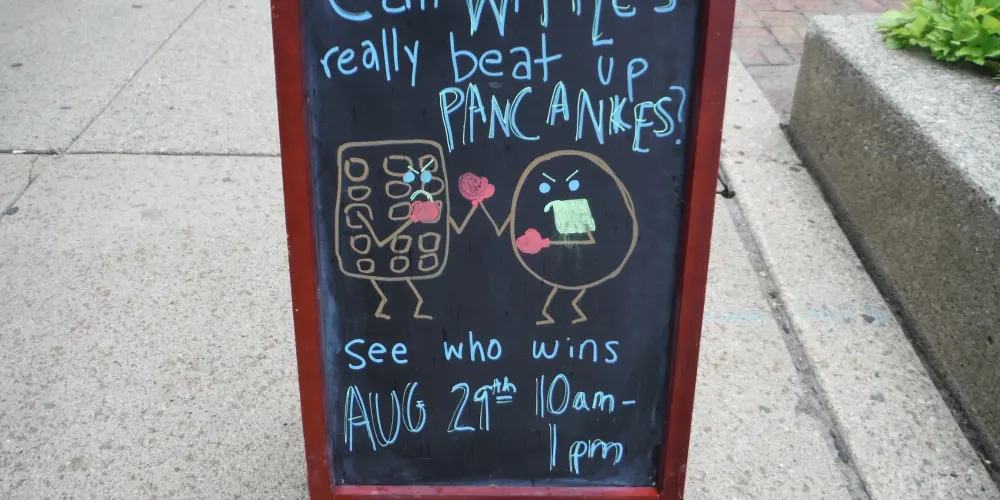 Can Waffles
really beat up
PANCANKES?
see who wins
AUG 29th 10am-
1pm